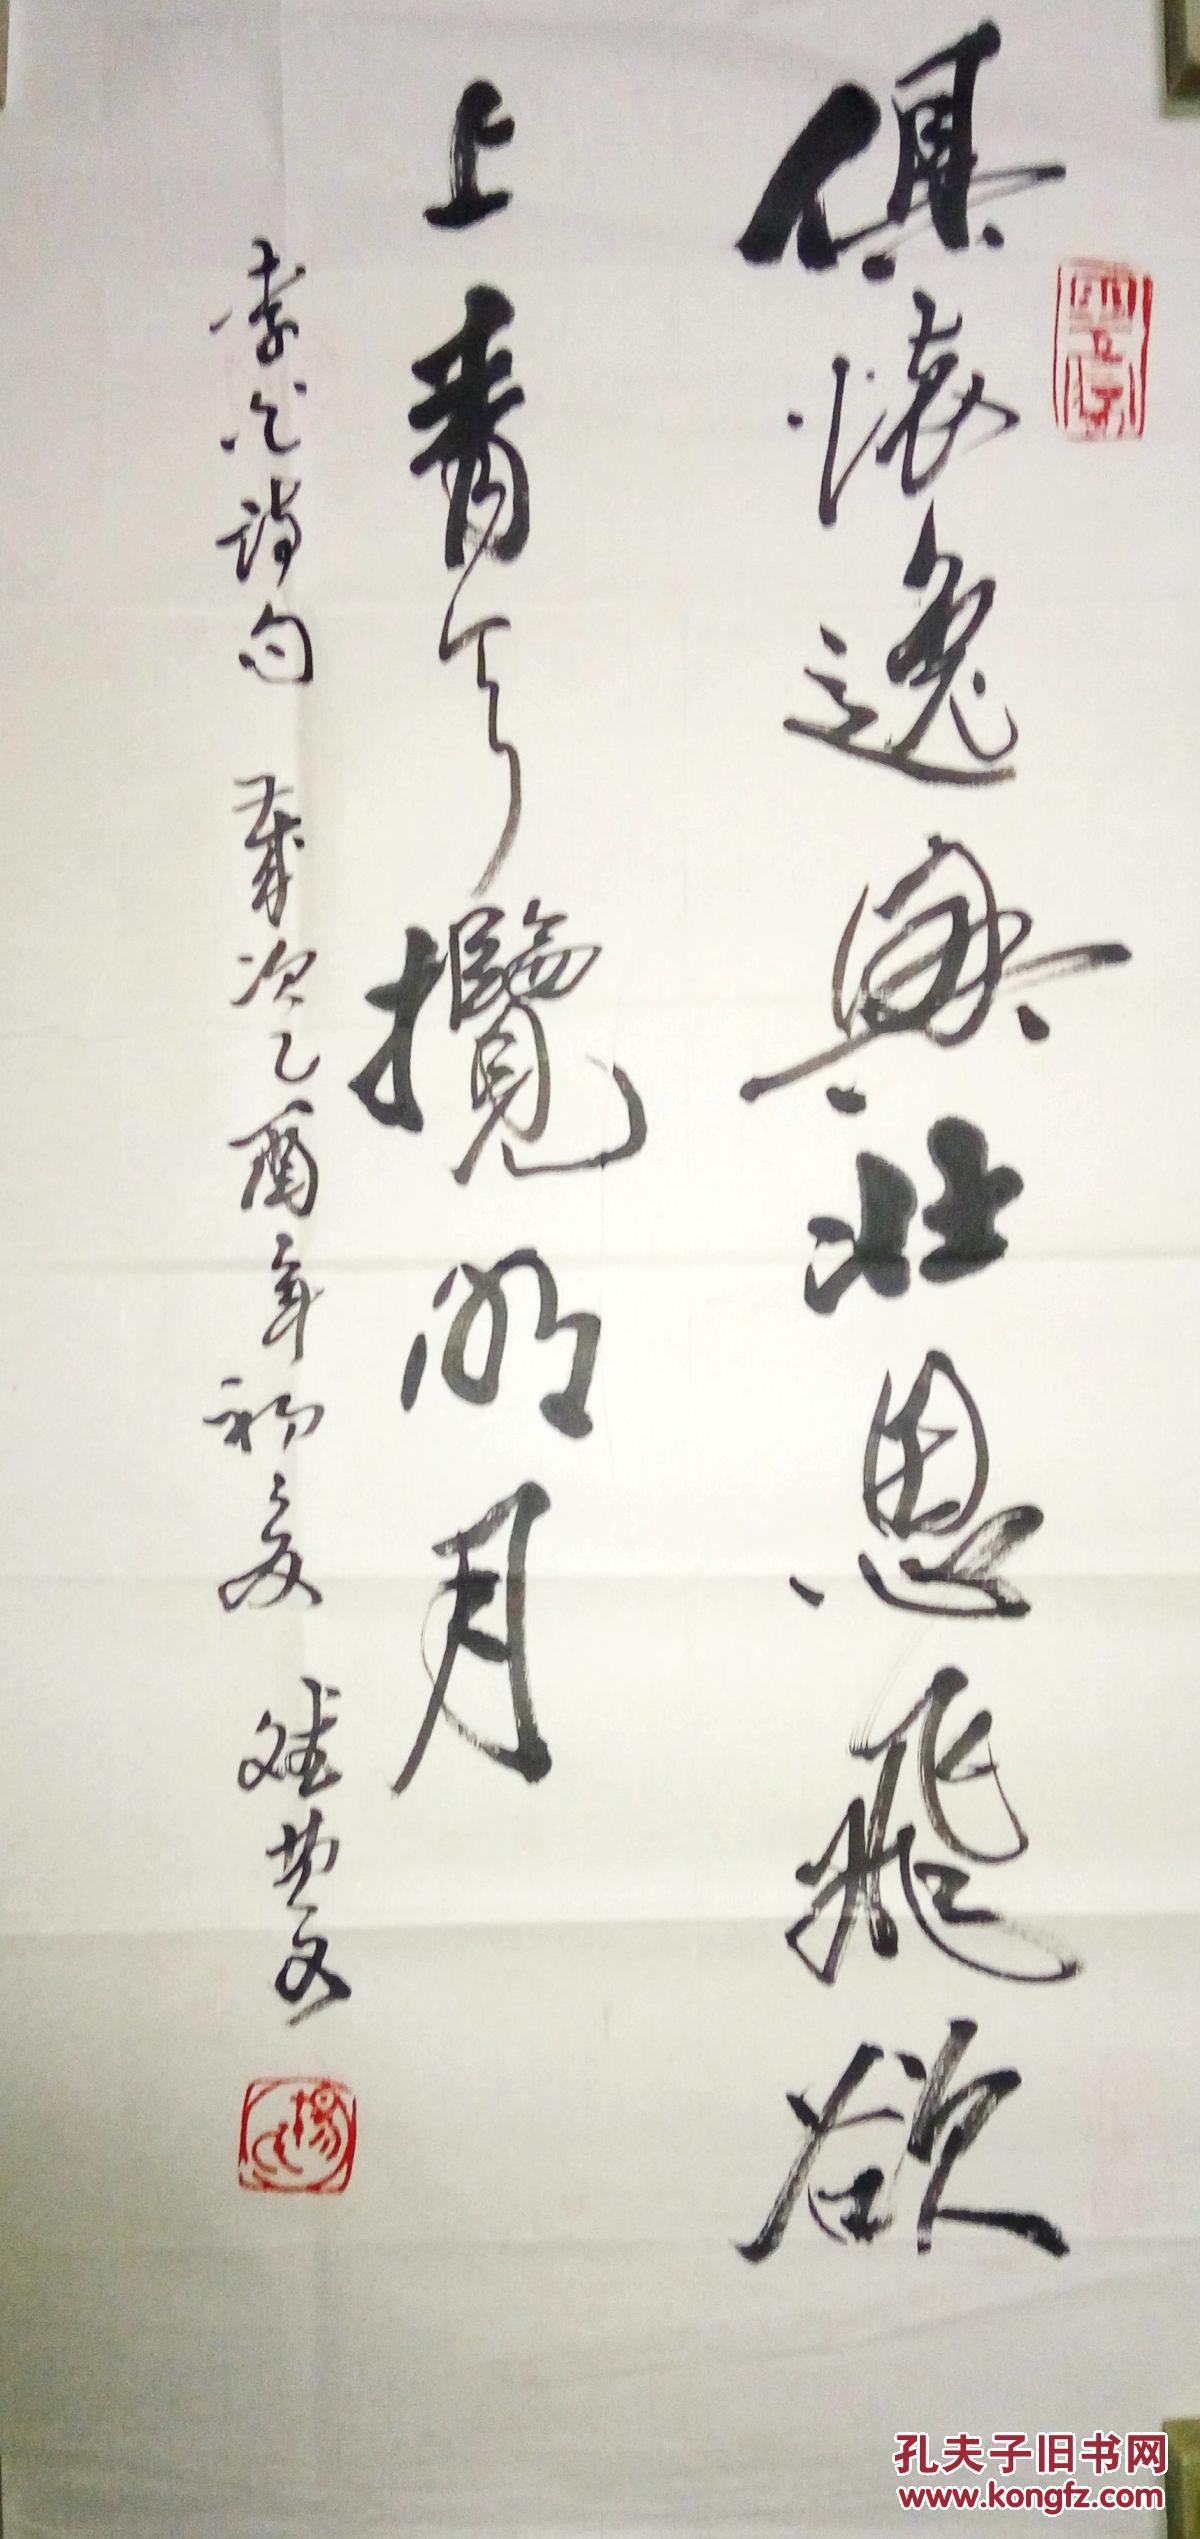 俱懷逸興壯思飛欲
上青天攬明月
李白詩句 歲次乙酉年初夏 斌楚文
孔夫子旧书网
www.kongfz.com